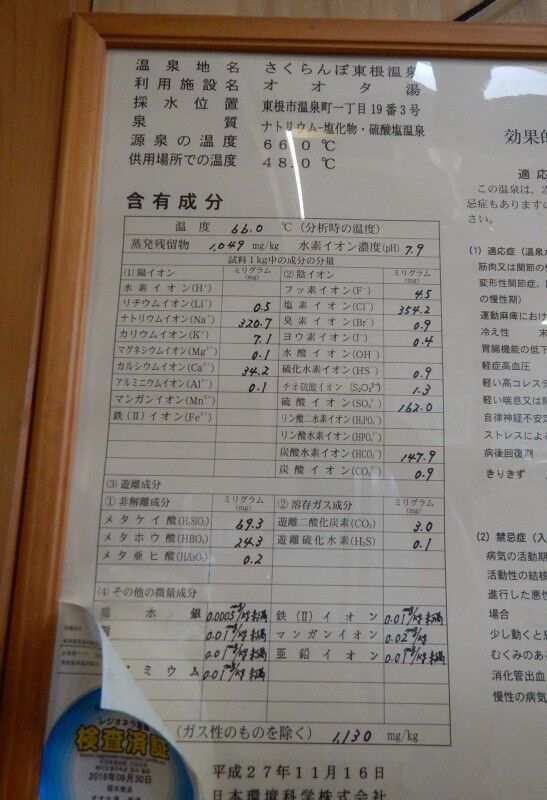 温泉地名 さくらんぼ東根温泉
利用施設名 オオタ湯
採水位置 東根市温泉町一丁目19番3号
泉質 ナトリウム-塩化物・硫酸塩温泉
源泉の温度 66.0 ℃
供用場所での温度 48.0 ℃
含有成分
温度 66.0 ℃(分析時の温度)
蒸発残留物 1,049 mg/kg 水素イオン濃度(pH) 7.9
試料1kg中の成分の分量
(1) 陽イオン ミリグラム(mg) (2) 陰イオン ミリグラム(mg)
水素イオン(H⁺) フッ素イオン(F⁻) 4.5
リチウムイオン(Li⁺) 0.5 塩素イオン(Cl⁻) 354.2
ナトリウムイオン(Na⁺) 320.7 臭素イオン(Br⁻) 0.9
カリウムイオン(K⁺) 7.1 ヨウ素イオン(I⁻) 0.4
マグネシウムイオン(Mg²⁺) 0.1 水酸イオン(OH⁻)
カルシウムイオン(Ca²⁺) 34.2 硫化水素イオン(HS⁻) 0.9
アルミニウムイオン(Al³⁺) 0.1 チオ硫酸イオン(S₂O₃²⁻) 1.3
マンガンイオン(Mn²⁺) 硫酸イオン(SO₄²⁻) 162.0
鉄(II)イオン(Fe²⁺) リン酸二水素イオン(H₂PO₄⁻)
リン酸水素イオン(HPO₄²⁻)
炭酸水素イオン(HCO₃⁻) 147.9
炭酸イオン(CO₃²⁻) 0.9
(3) 遊離成分
① 非解離成分 ミリグラム(mg) ② 溶存ガス成分 ミリグラム(mg)
メタケイ酸(H₂SiO₃) 69.3 遊離二酸化炭素(CO₂) 3.0
メタホウ酸(HBO₂) 24.3 遊離硫化水素(H₂S) 0.1
メタ亜ヒ酸(HAsO₂) 0.2
(4) その他の微量成分
総水銀 0.0005mg/kg未満 鉄(II)イオン 0.01mg/kg未満
0.01mg/kg未満 マンガンイオン 0.02mg/kg
0.01mg/kg未満 亜鉛イオン 0.01mg/kg未満
ミウム 0.01mg/kg未満
(ガス性のものを除く) 1,130 mg/kg
平成27年11月16日
日本環境科学株式会社
効果的
適応
この温泉は、次
忌症もありますの
さい。
(1) 適応症(温泉
筋肉又は関節の
変形性関節症、
の慢性期)
運動麻痺におけ
冷え性 末
胃腸機能の低下
軽症高血圧
軽い高コレステ
軽い喘息又は
自律神経不安
ストレスによ
病後回復期
きりきず
(2) 禁忌症(入
病気の活動期
活動性の結核
進行した悪性
場合
少し動くと息
むくみのあ
消化管出血
慢性の病気
レジオネラ
検査済証
2018年09月30日
採水地点